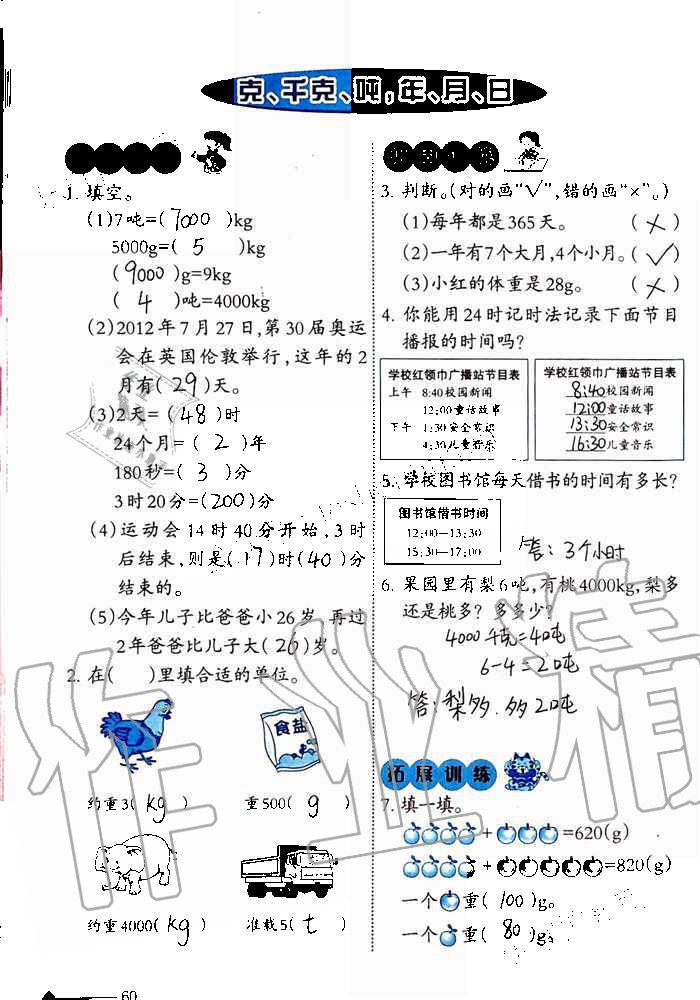 克、千克、吨,年、月、日
1. 填空。
(1)7吨=(7000)kg
5000g=( 5 )kg
(9000)g=9kg
( 4 )吨=4000kg
(2)2012年7月27日,第30届奥运
会在英国伦敦举行,这年的2
月有(29)天。
(3)2天=(48)时
24个月=( 2 )年
180秒=( 3 )分
3时20分=(200)分
(4)运动会14时40分开始,3时
后结束,则是(17)时(40)分
结束的。
(5)今年儿子比爸爸小26岁,再过
2年爸爸比儿子大(26)岁。
2. 在( )里填合适的单位。
食盐
约重3(kg) 重500( g )
约重4000(kg) 准载5( t )
60
3. 判断。(对的画“√”,错的画“×”。)
(1)每年都是365天。 (×)
(2)一年有7个大月,4个小月。(√)
(3)小红的体重是28g。 (×)
4. 你能用24时记时法记录下面节目
播报的时间吗?
学校红领巾广播站节目表
上午 8:40校园新闻
12:00童话故事
下午 1:30安全常识
4:30儿童音乐
学校红领巾广播站节目表
8:40校园新闻
12:00童话故事
13:30安全常识
16:30儿童音乐
5. 学校图书馆每天借书的时间有多长?
图书馆借书时间
12:00—13:30
15:30—17:00
答:3个小时
6. 果园里有梨6吨,有桃4000kg,梨多
还是桃多?多多少?
4000千克=4吨
6-4=2吨
答:梨多.多2吨
拓展训练
7. 填一填。
+ =620(g)
+ =820(g)
一个 重(100)g。
一个 重( 80 )g。
作业精